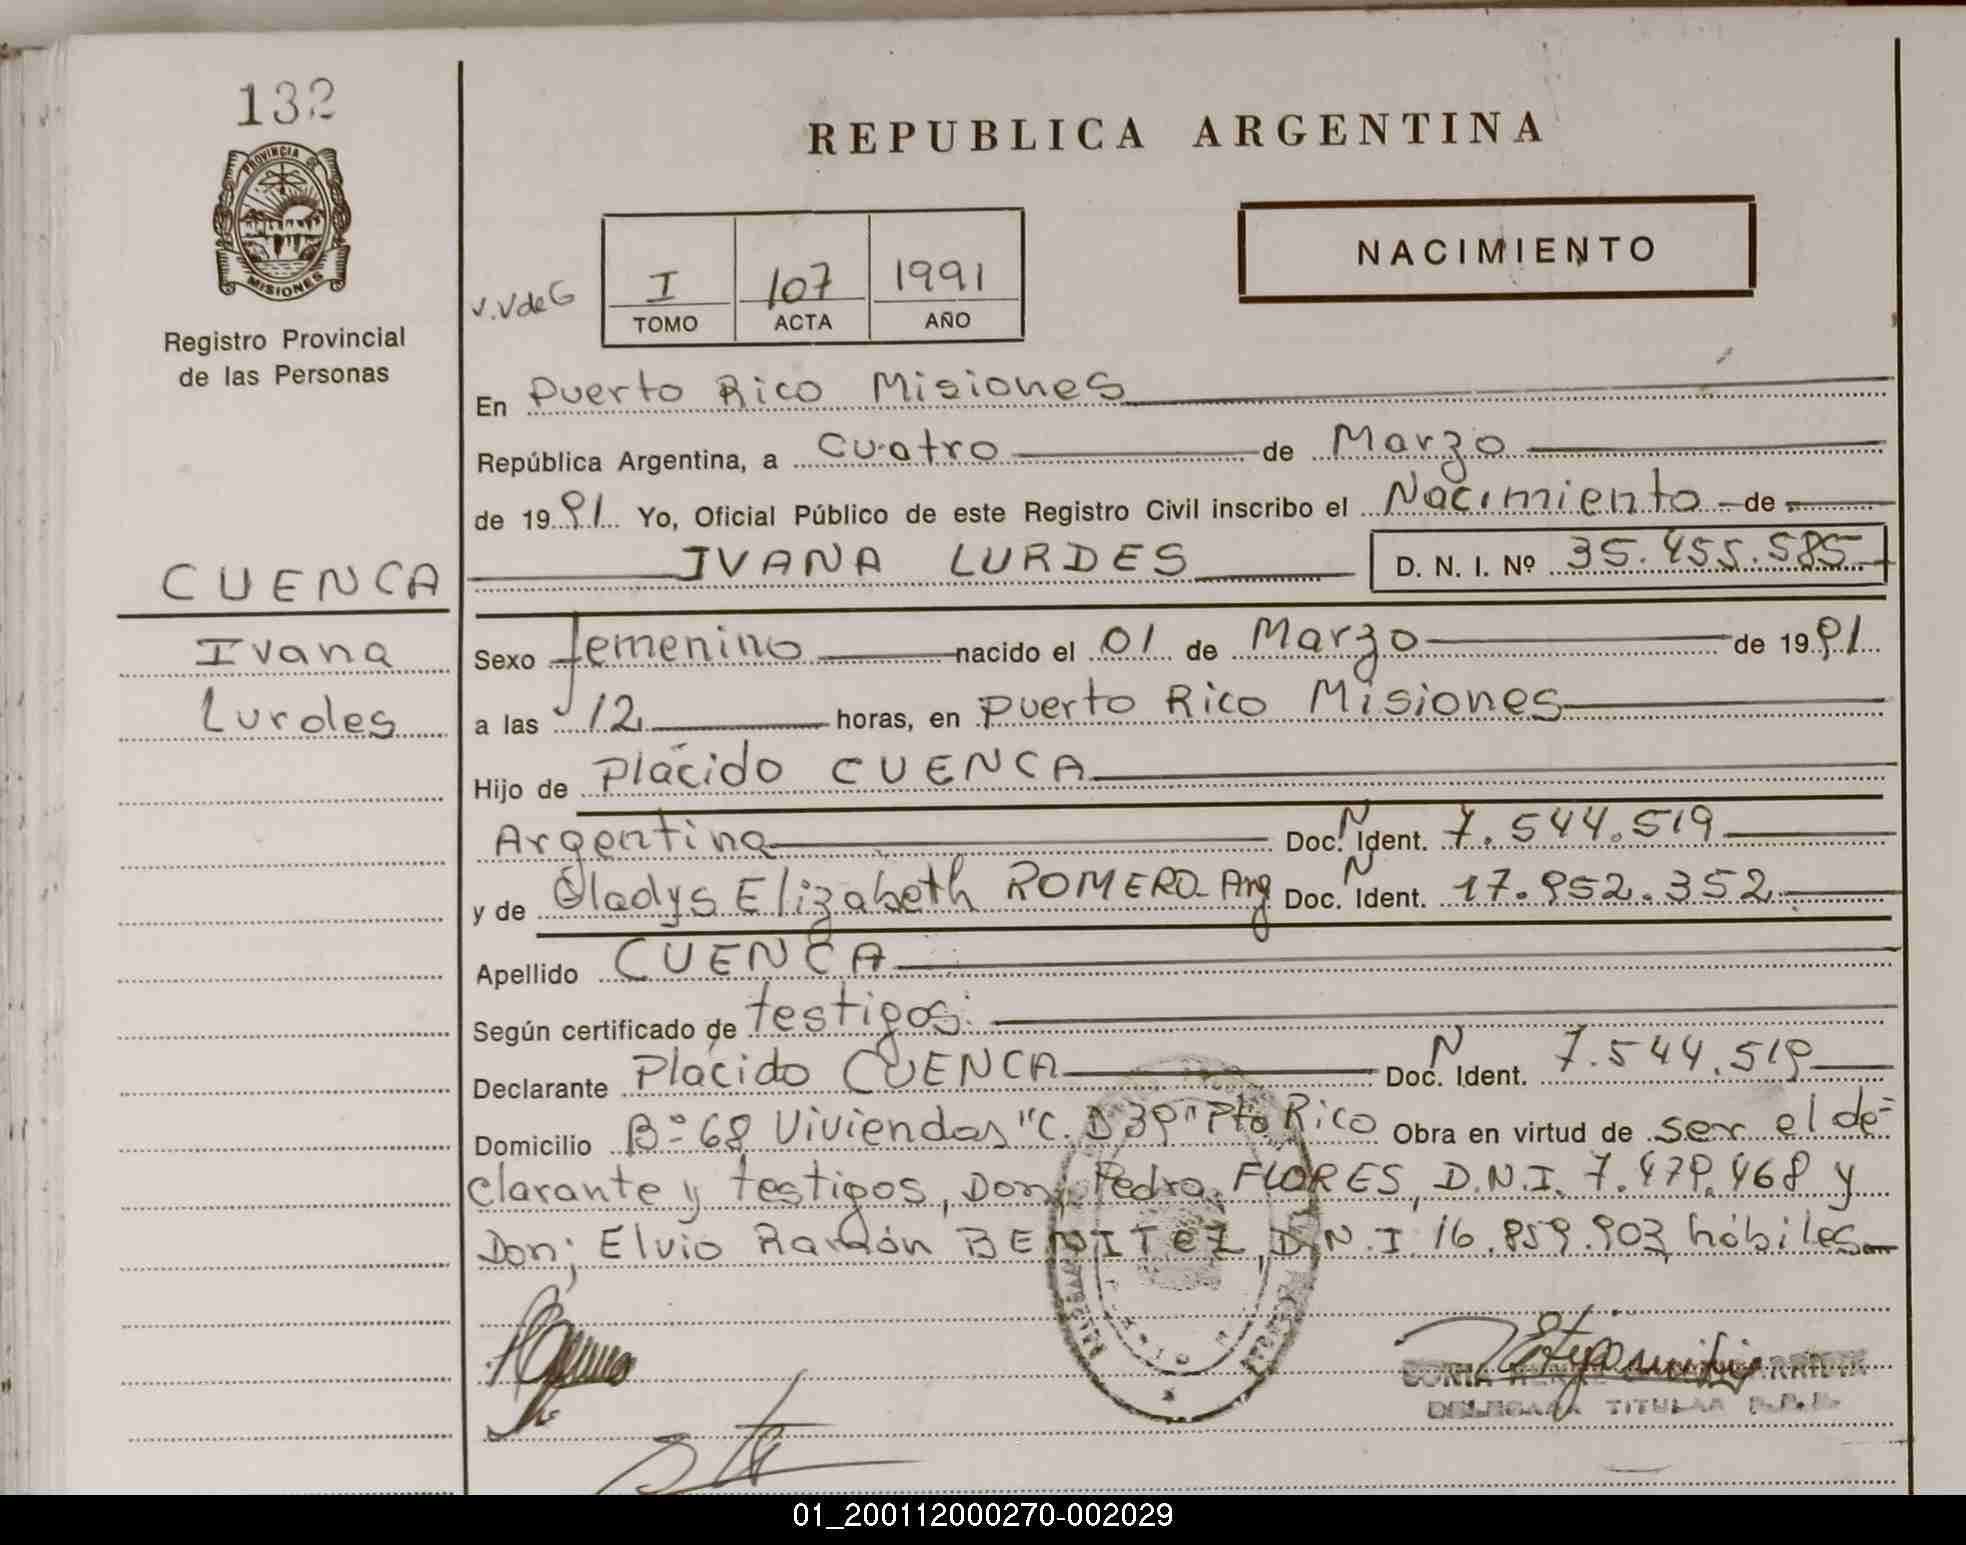 132
PROVINCIA DE
MISIONES
Registro Provincial
de las Personas
REPUBLICA ARGENTINA
NACIMIENTO
V.V de G
I 107 1991
TOMO ACTA AÑO
En Puerto Rico Misiones
República Argentina, a Cuatro de Marzo
de 1991 Yo, Oficial Público de este Registro Civil inscribo el Nacimiento de
IVANA LURDES D. N. I. Nº 35.455.585
CUENCA
Ivana
Lurdes
Sexo femenino nacido el 01 de Marzo de 1991
a las 12 horas, en Puerto Rico Misiones
Hijo de Plácido CUENCA
Argentina Doc. N Ident. 7.544.519
y de Gladys Elizabeth ROMERO - Arg Doc. N Ident. 17.952.352
Apellido CUENCA
Según certificado de testigos:
Declarante Plácido CUENCA Doc. N Ident. 7.544.519
Domicilio Bº 68 Viviendas "C. D 39" Pto Rico Obra en virtud de ser el de=
clarante y testigos, Don; Pedro FLORES, D.N.I. 7.479.468 y
Don; Elvio Ramón BENITEZ, D.N.I. 16.959.903, hábiles
DELEGADA TITULAR R.P.P.
01_200112000270-002029